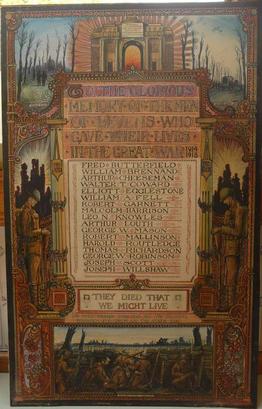 TO THE GLORIOUS
MEMORY OF THE MEN
OF LEVENS WHO
GAVE THEIR LIVES
IN THE GREAT WAR
FRED BUTTERFIELD
WILLIAM BRENNAND
ARTHUR CHEESEMAN
WALTER T COWARD
ELLIOTT ECCLESTONE
WILLIAM A FELL
ROBERT GARNETT
MALCOLM HARRISON
LEO N KNOWLES
ARTHUR LOTH
GEORGE W MASON
ROBERT MALLINSON
HAROLD ROUTLEDGE
THOMAS RICHARDSON
GEORGE W ROBINSON
JOSEPH SCOTT
JOSEPH WILLSHAW
THEY DIED THAT
WE MIGHT LIVE